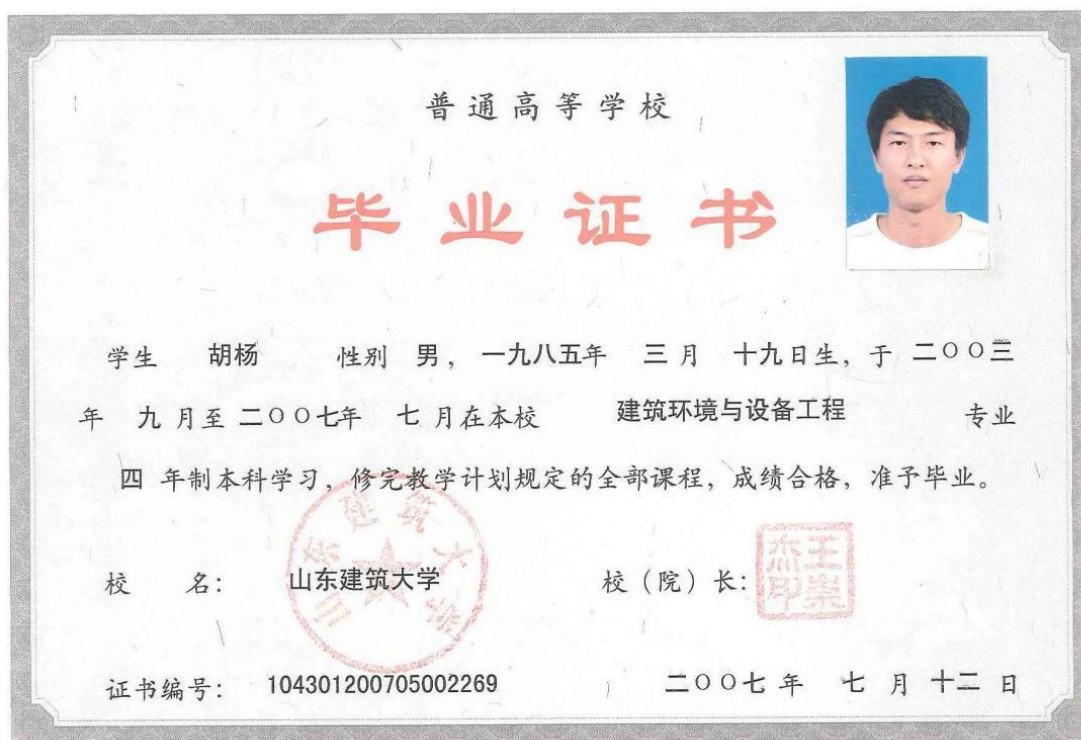 普通高等学校
毕业证书
学生 胡杨 性别 男，一九八五年 三月 十九日生，于 二〇〇三
年 九 月至 二〇〇七年 七 月在本校 建筑环境与设备工程 专业
四 年制本科学习，修完教学计划规定的全部课程，成绩合格，准予毕业。
山东建筑大学
校 名： 山东建筑大学 校（院）长：
王崇杰印
证书编号： 104301200705002269 二〇〇七 年 七 月 十二 日